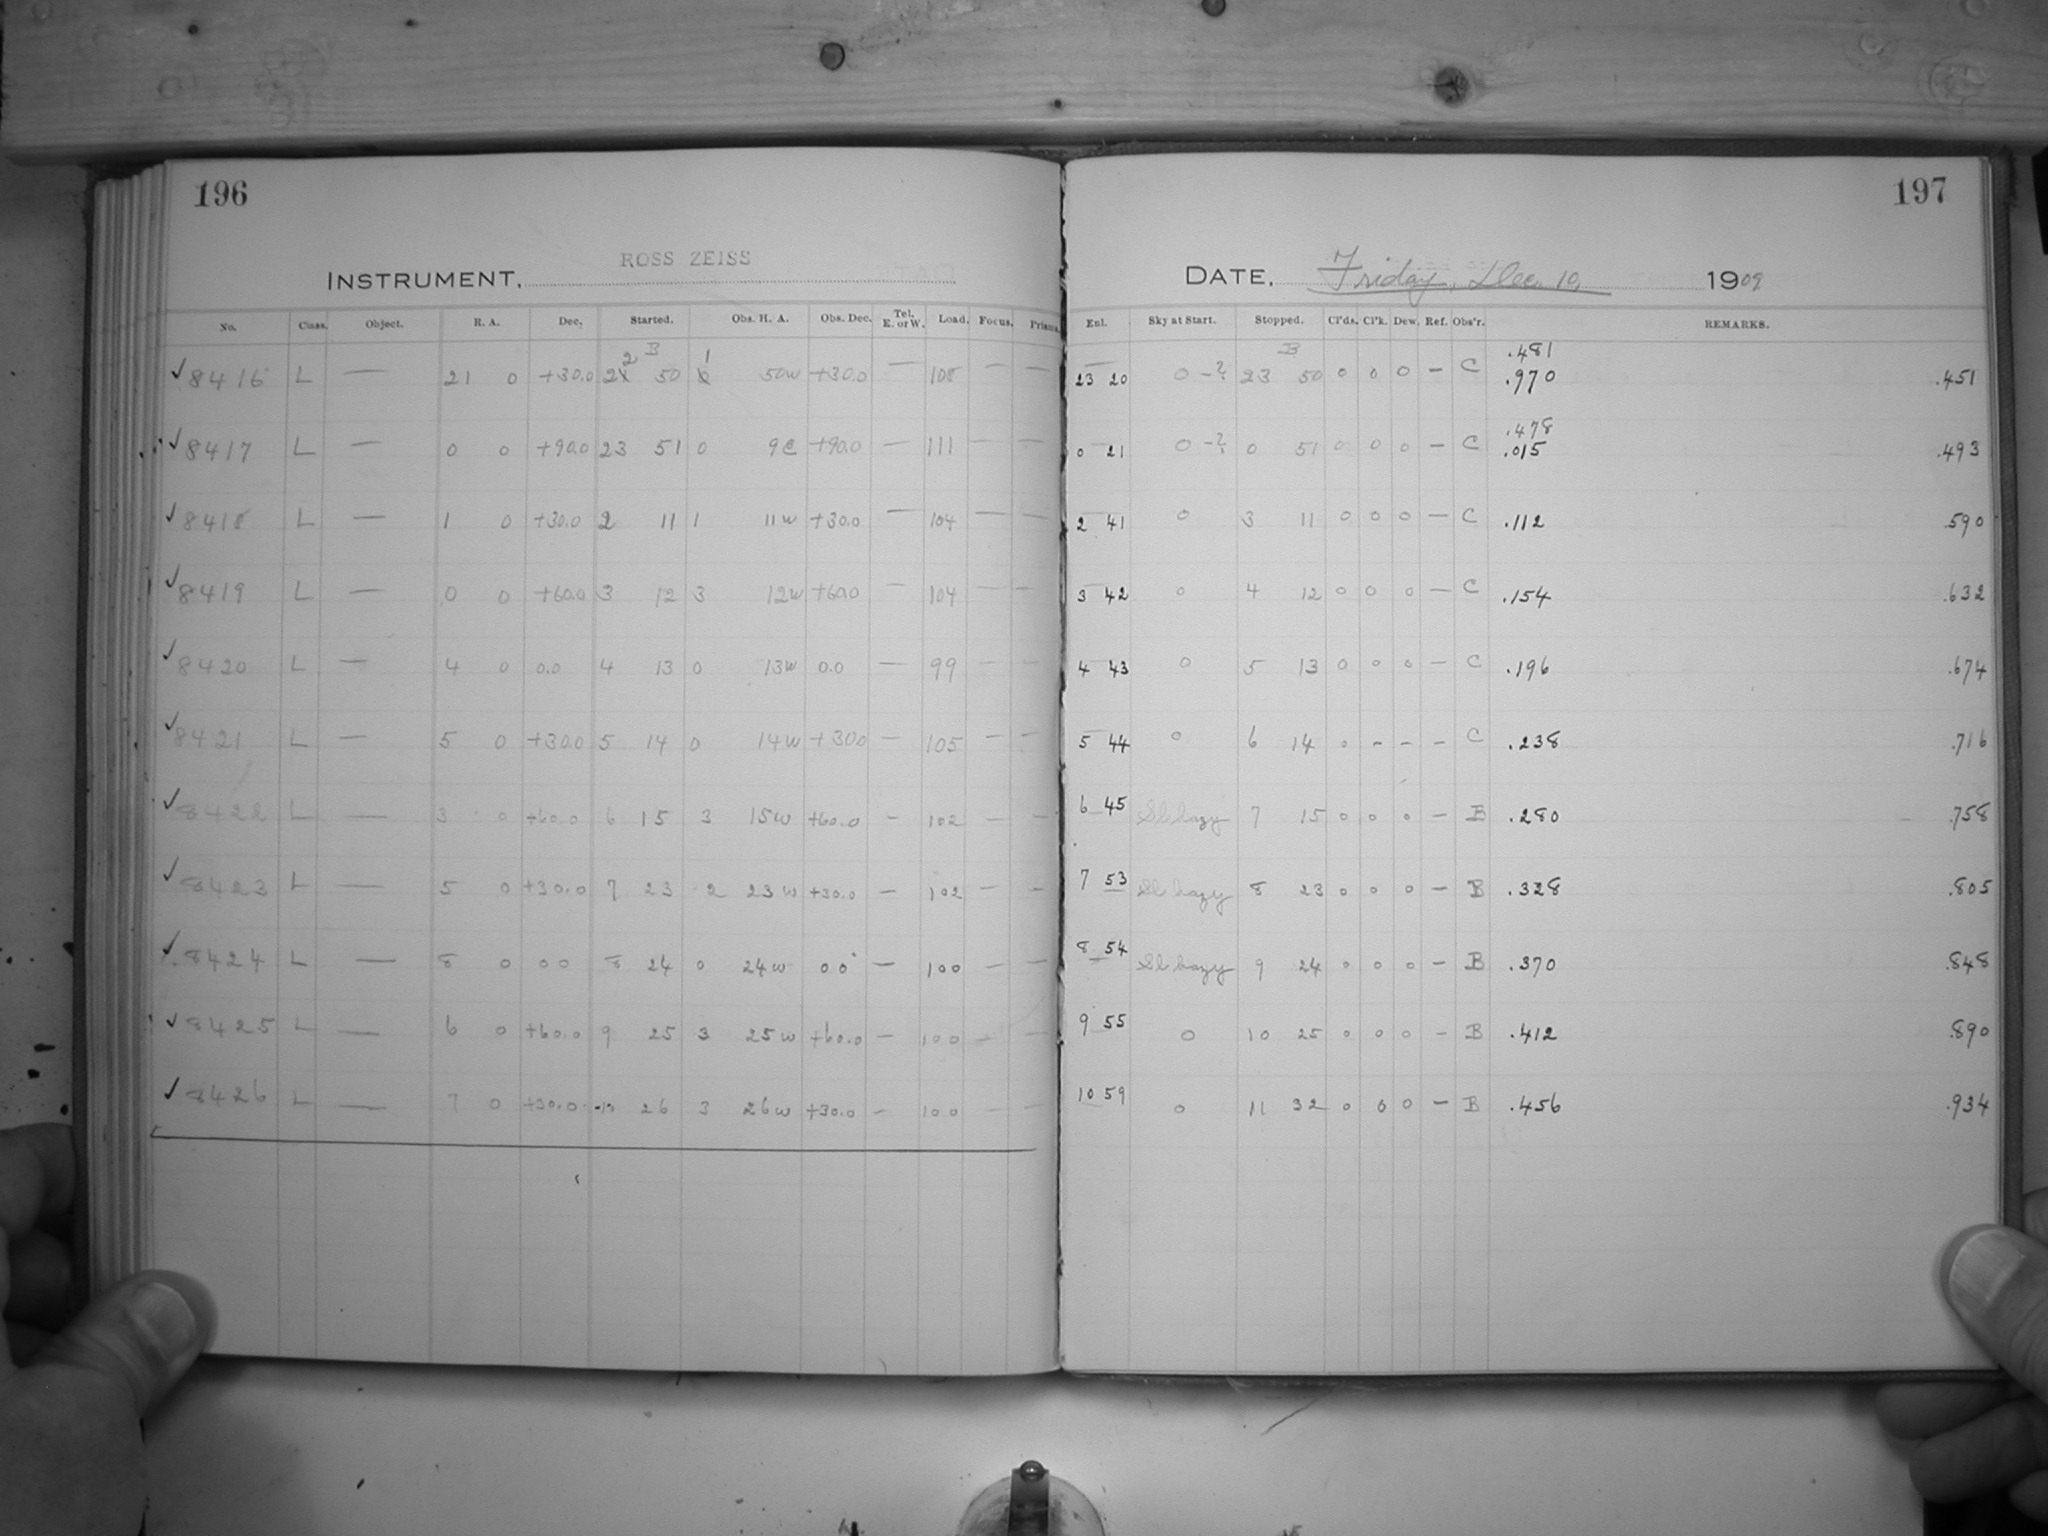 196
ROSS ZEISS
INSTRUMENT,
No. Class. Object. R. A. Dec. Started. Obs. H. A. Obs. Dec. Tel. E. or W. Load. Focus. Prisms.
✓8416 L — 21 0 +30.0 22 B 50 1 50w +30.0 — 108 — —
✓8417 L — 0 0 +90.0 23 51 0 9e +90.0 — 111 — —
✓8418 L — 1 0 +30.0 2 11 1 11w +30.0 — 104 — —
✓8419 L — 0 0 +60.0 3 12 3 12w +60.0 — 104 — —
✓8420 L — 4 0 0.0 4 13 0 13w 0.0 — 99 — —
✓8421 L — 5 0 +30.0 5 14 0 14w +30.0 — 105 — —
✓8422 L — 3 0 +60.0 6 15 3 15w +60.0 — 102 — —
✓8423 L — 5 0 +30.0 7 23 2 23w +30.0 — 102 — —
✓8424 L — 8 0 0 0 8 24 0 24w 0 0 — 100 — —
✓8425 L — 6 0 +60.0 9 25 3 25w +60.0 — 100 — —
✓8426 L — 7 0 +30.0 26 3 26w +30.0 — 100 — —
197
DATE, Friday, Dec. 10, 1909
Enl. Sky at Start. Stopped. Cl'ds. Cl'k. Dew. Ref. Obs'r. REMARKS.
23 20 0-? 23 B 50 0 0 0 — C .481 .970 .451
0 21 0-? 0 51 0 0 0 — C .478 .015 .493
2 41 0 3 11 0 0 0 — C .112 .590
3 42 0 4 12 0 0 0 — C .154 .632
4 43 0 5 13 0 0 0 — C .196 .674
5 44 0 6 14 0 - - - C .238 .716
6 45 Sl hazy 7 15 0 0 0 — B .280 .758
7 53 Sl hazy 8 23 0 0 0 — B .328 .805
8 54 Sl hazy 9 24 0 0 0 — B .370 .848
9 55 0 10 25 0 0 0 - B .412 .890
10 59 0 11 32 0 0 0 — B .456 .934